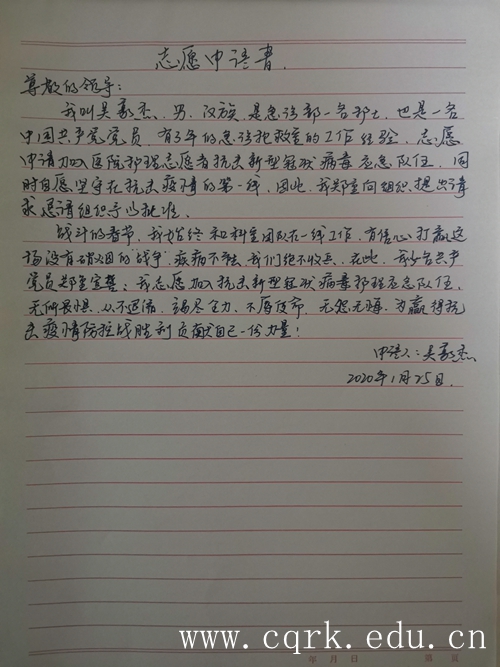 志愿申请书
尊敬的领导：
我叫吴豪杰，男，汉族，是急诊部一名护士，也是一名
中国共产党党员，有3年的急诊抢救室的工作经验，志愿
申请加入医院护理志愿者抗击新型冠状病毒应急队伍，同
时自愿坚守在抗击疫情的第一线，因此，我郑重向组织提出请
求，恳请组织予以批准。
战斗的春节，我始终和科室团队在一线工作，有信心打赢这
场没有硝烟的"战争"，疾病不除，我们绝不收兵，在此，我以一名共产
党员郑重宣誓：我志愿加入抗击新型冠状病毒护理应急队伍，
无所畏惧，从不退缩，竭尽全力，不辱使命，无怨无悔，为赢得抗
击疫情防控战胜利贡献自己一份力量！
申请人：吴豪杰
2020年1月25日
www.cqrk.edu.cn
年 月 日 第 页